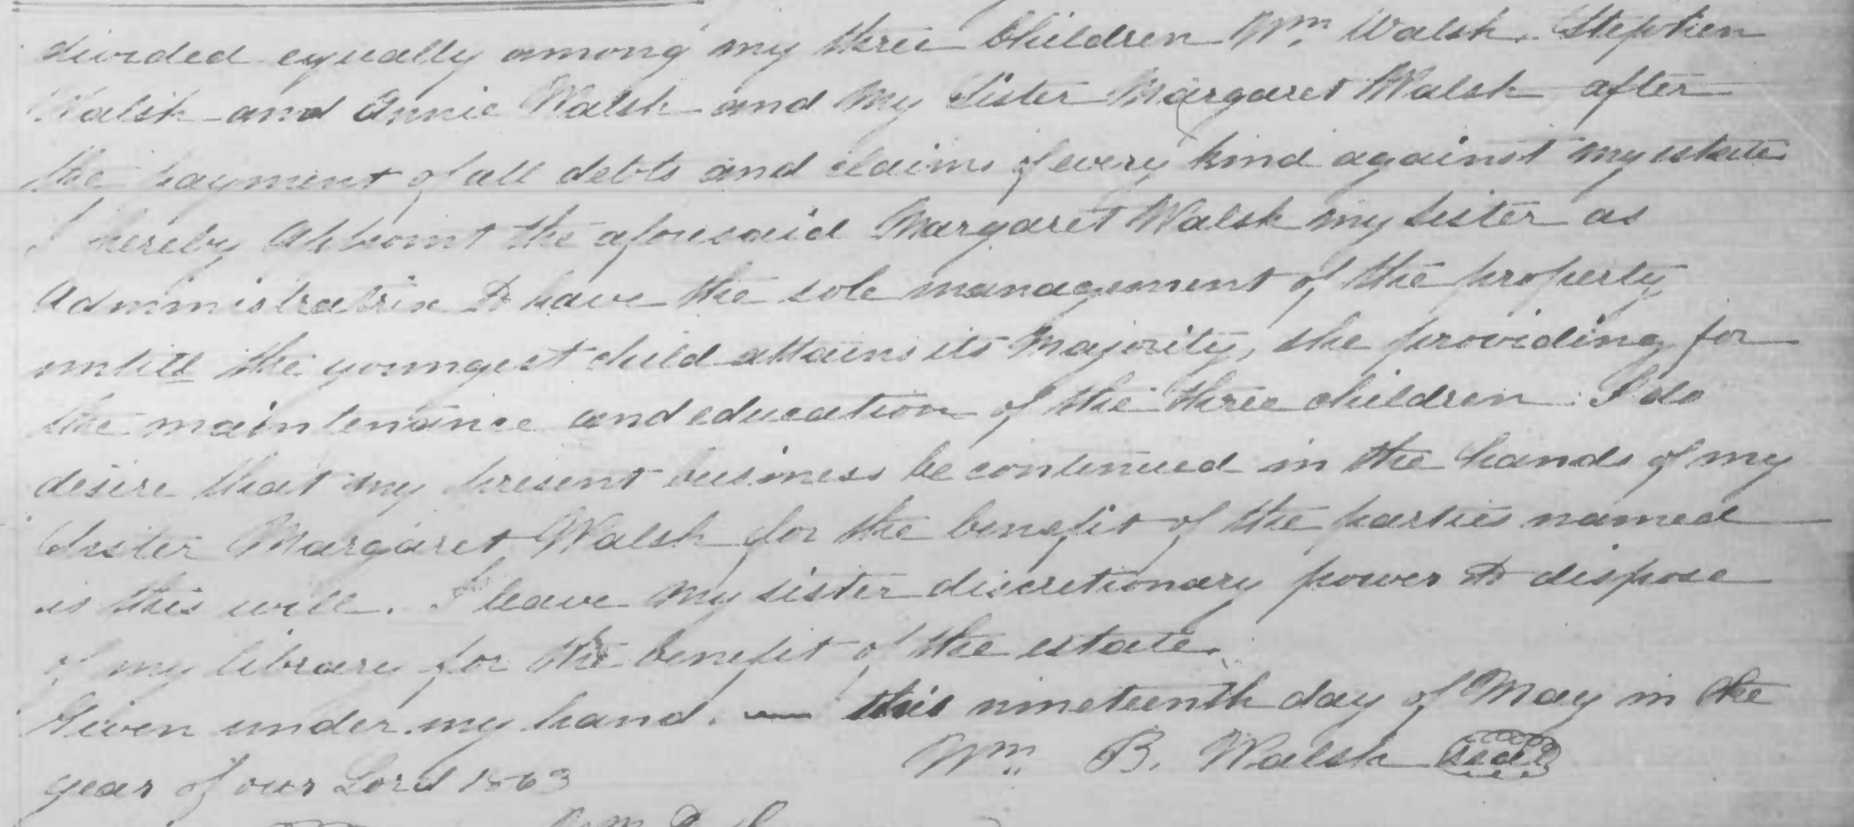 divided equally among my three Children Wm. Walsh, Stephen
Walsh and Annie Walsh and my Sister Margaret Walsh after
the payment of all debts and claims of every kind against my estate
I hereby Appoint the aforesaid Margaret Walsh my Sister as
Administratrix to have the sole management of the property
untill the youngest child attains its Majority, she providing for
the maintenance and education of the three children. I do
desire that my present business be continued in the hands of my
Sister Margaret Walsh for the benefit of the parties named
is this will. I leave my sister discretionary power to dispose
of my library for the benefit of the estate.
Given under my hand. — this nineteenth day of May in the
year of our Lord 1863
Wm. B. Walsh seal